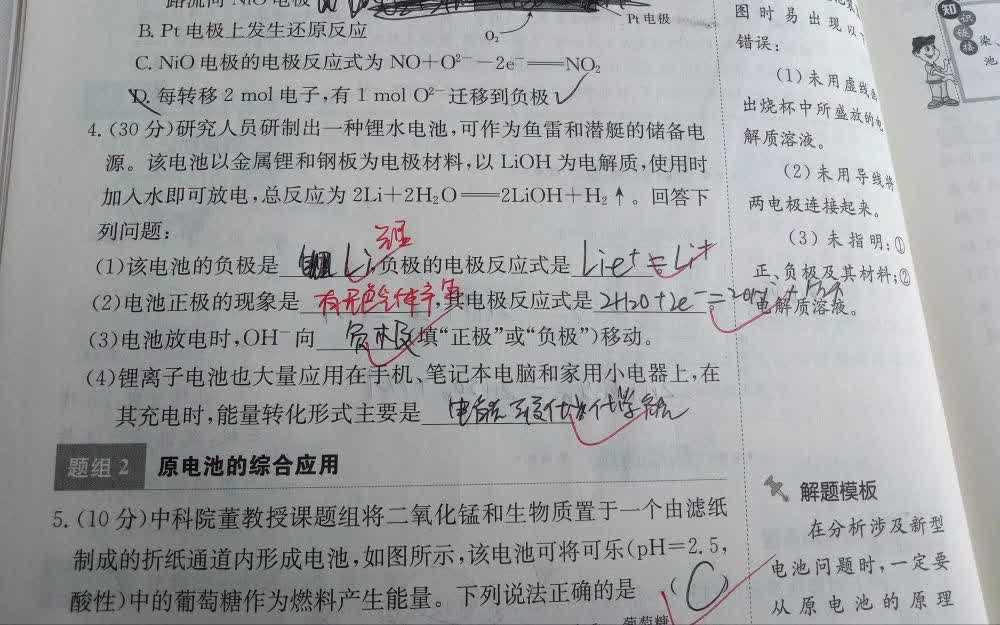 Pt 电极
O₂
B. Pt 电极上发生还原反应
C. NiO 电极的电极反应式为 NO+O²⁻−2e⁻══NO₂
D. 每转移 2 mol 电子,有 1 mol O²⁻ 迁移到负极
4. (30 分)研究人员研制出一种锂水电池,可作为鱼雷和潜艇的储备电
源。该电池以金属锂和钢板为电极材料,以 LiOH 为电解质,使用时
加入水即可放电,总反应为 2Li+2H₂O══2LiOH+H₂↑。回答下
列问题:
(1)该电池的负极是 Li 锂,负极的电极反应式是 Lie⁺=Li⁺
(2)电池正极的现象是 有无色气体产生,其电极反应式是 2H₂O+2e⁻=2OH⁻+H₂↑
(3)电池放电时,OH⁻向 负极 填“正极”或“负极”)移动。
(4)锂离子电池也大量应用在手机、笔记本电脑和家用小电器上,在
其充电时,能量转化形式主要是 电能 化学能
题组 2 原电池的综合应用
5. (10 分)中科院董教授课题组将二氧化锰和生物质置于一个由滤纸
制成的折纸通道内形成电池,如图所示,该电池可将可乐(pH=2.5,
酸性)中的葡萄糖作为燃料产生能量。下列说法正确的是 (C)
葡萄糖
图时易出现以
错误:
(1)未用虚线画
出烧杯中所盛放的电
解质溶液。
(2)未用导线将
两电极连接起来。
(3)未指明:①
正、负极及其材料;②
电解质溶液。
解题模板
在分析涉及新型
电池问题时,一定要
从原电池的原理
知识链接
染、
池